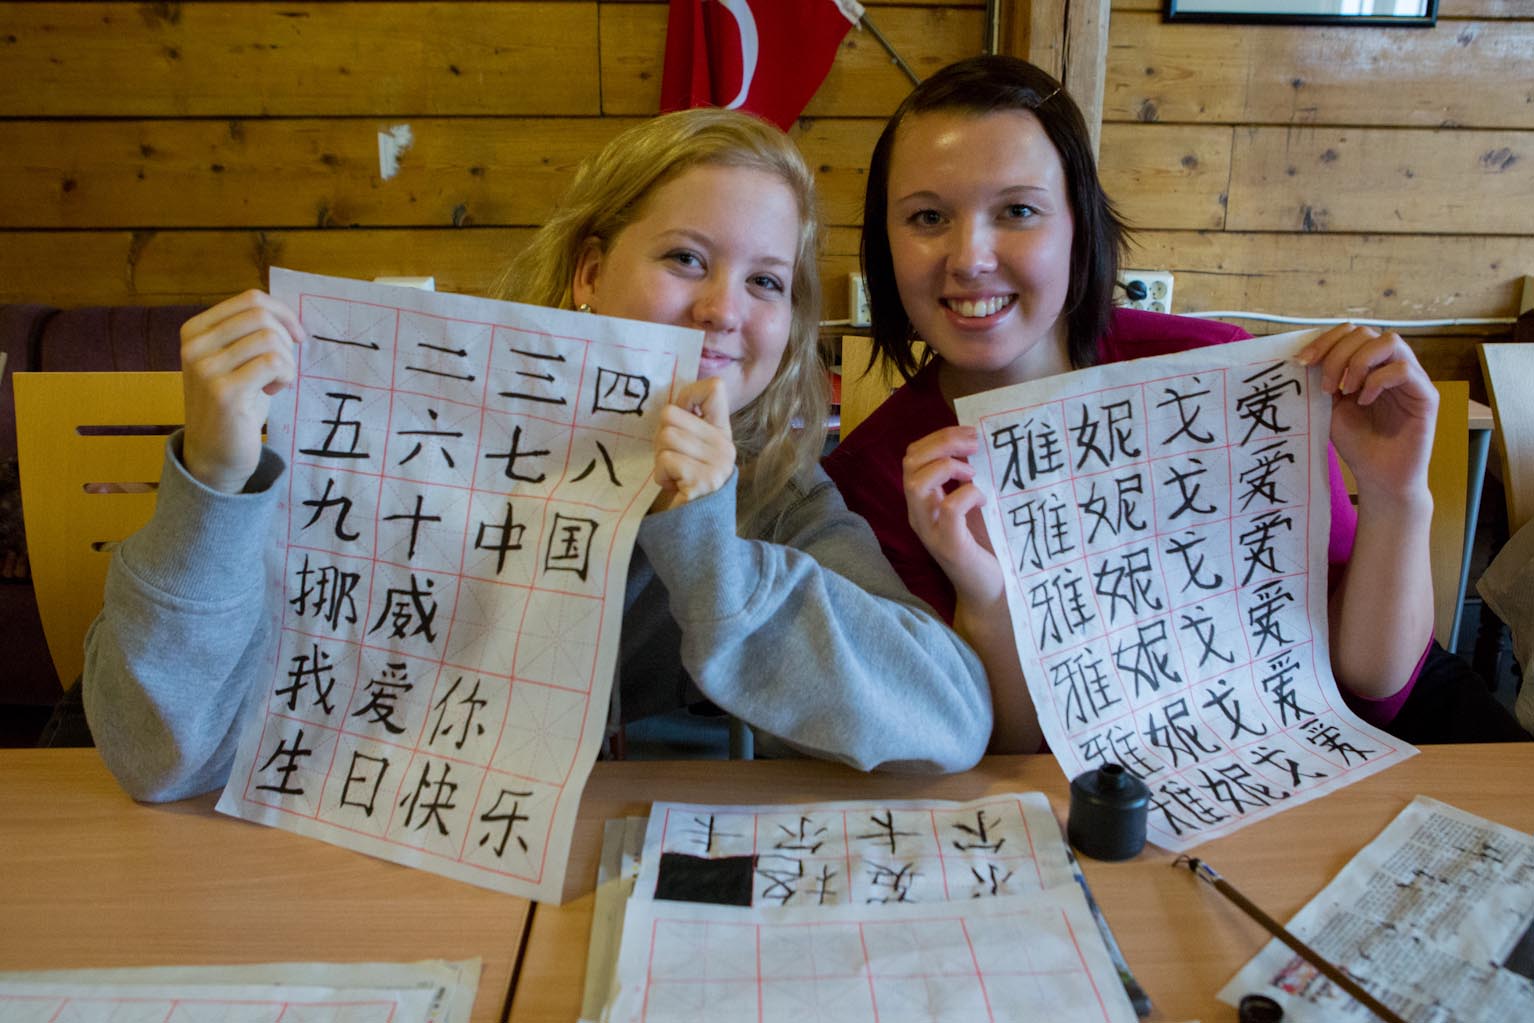 一 二 三 四
五 六 七 八
九 十 中 国
挪 威
我 爱 你
生 日 快 乐
雅 妮 戈 爱
雅 妮 戈 爱
雅 妮 戈 爱
雅 妮 戈 爱
雅 妮 戈 爱
雅 妮 戈 爱